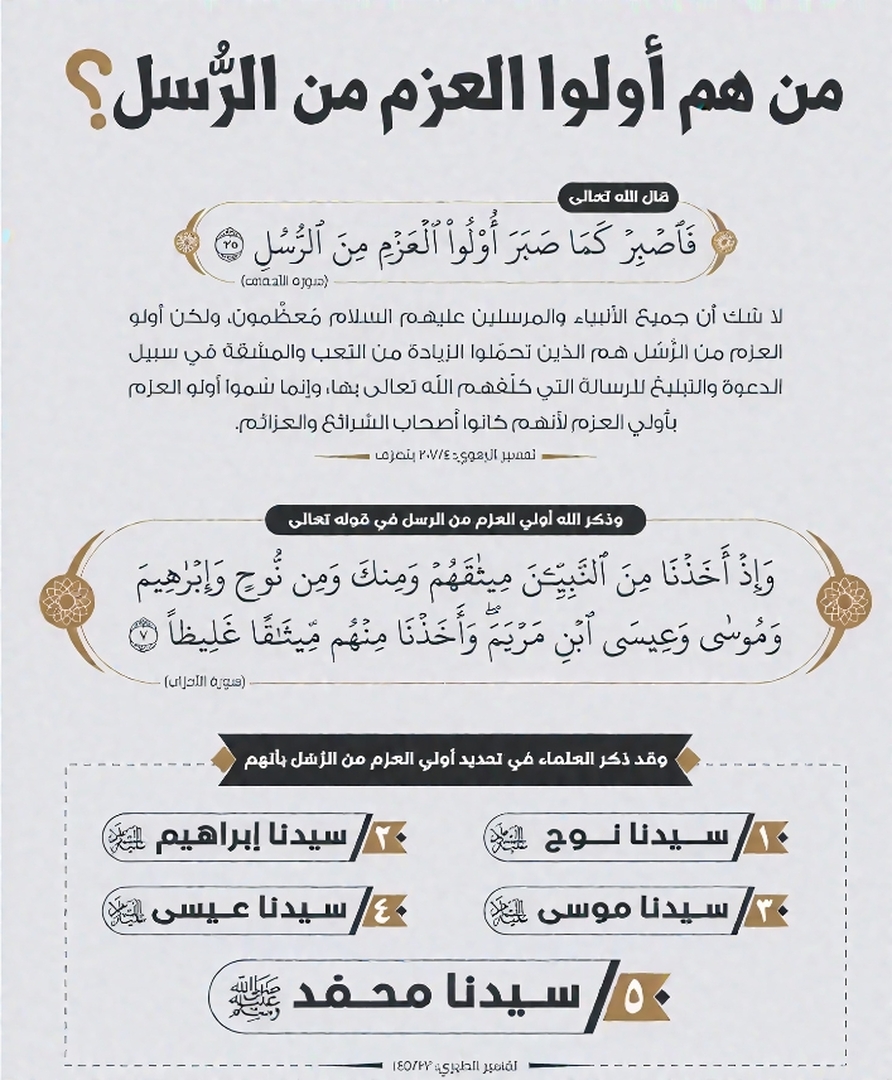 من هم أولوا العزم من الرُّسل؟
قال الله تعالى
فَٱصۡبِرۡ كَمَا صَبَرَ أُوْلُواْ ٱلۡعَزۡمِ مِنَ ٱلرُّسُلِ ٢٥
(سورة الأحقاف)
لا شك أن جميع الأنبياء والمرسلين عليهم السلام مُعظَّمون، ولكن أولو
العزم من الرُّسُل هم الذين تحمّلوا الزيادة من التعب والمشقة في سبيل
الدعوة والتبليغ للرسالة التي كلّفهم الله تعالى بها، وإنما سُموا أولو العزم
بأولي العزم لأنهم كانوا أصحاب الشرائع والعزائم.
تفسير البغوي: ٢٠٧/٤ بتصرف
وذكر الله أولي العزم من الرسل في قوله تعالى
وَإِذۡ أَخَذۡنَا مِنَ ٱلنَّبِيِّـۧنَ مِيثَٰقَهُمۡ وَمِنكَ وَمِن نُّوحٖ وَإِبۡرَٰهِيمَ
وَمُوسَىٰ وَعِيسَى ٱبۡنِ مَرۡيَمَۖ وَأَخَذۡنَا مِنۡهُم مِّيثَٰقًا غَلِيظٗا ٧
(سورة الأحزاب)
وقد ذكر العلماء في تحديد أولي العزم من الرُّسُل بأنهم
١ سيدنا نوح عليه السلام
٢ سيدنا إبراهيم عليه السلام
٣ سيدنا موسى عليه السلام
٤ سيدنا عيسى عليه السلام
٥ سيدنا محمد صلى الله عليه وسلم
تفسير الطبري: ١٤٥/٢٢